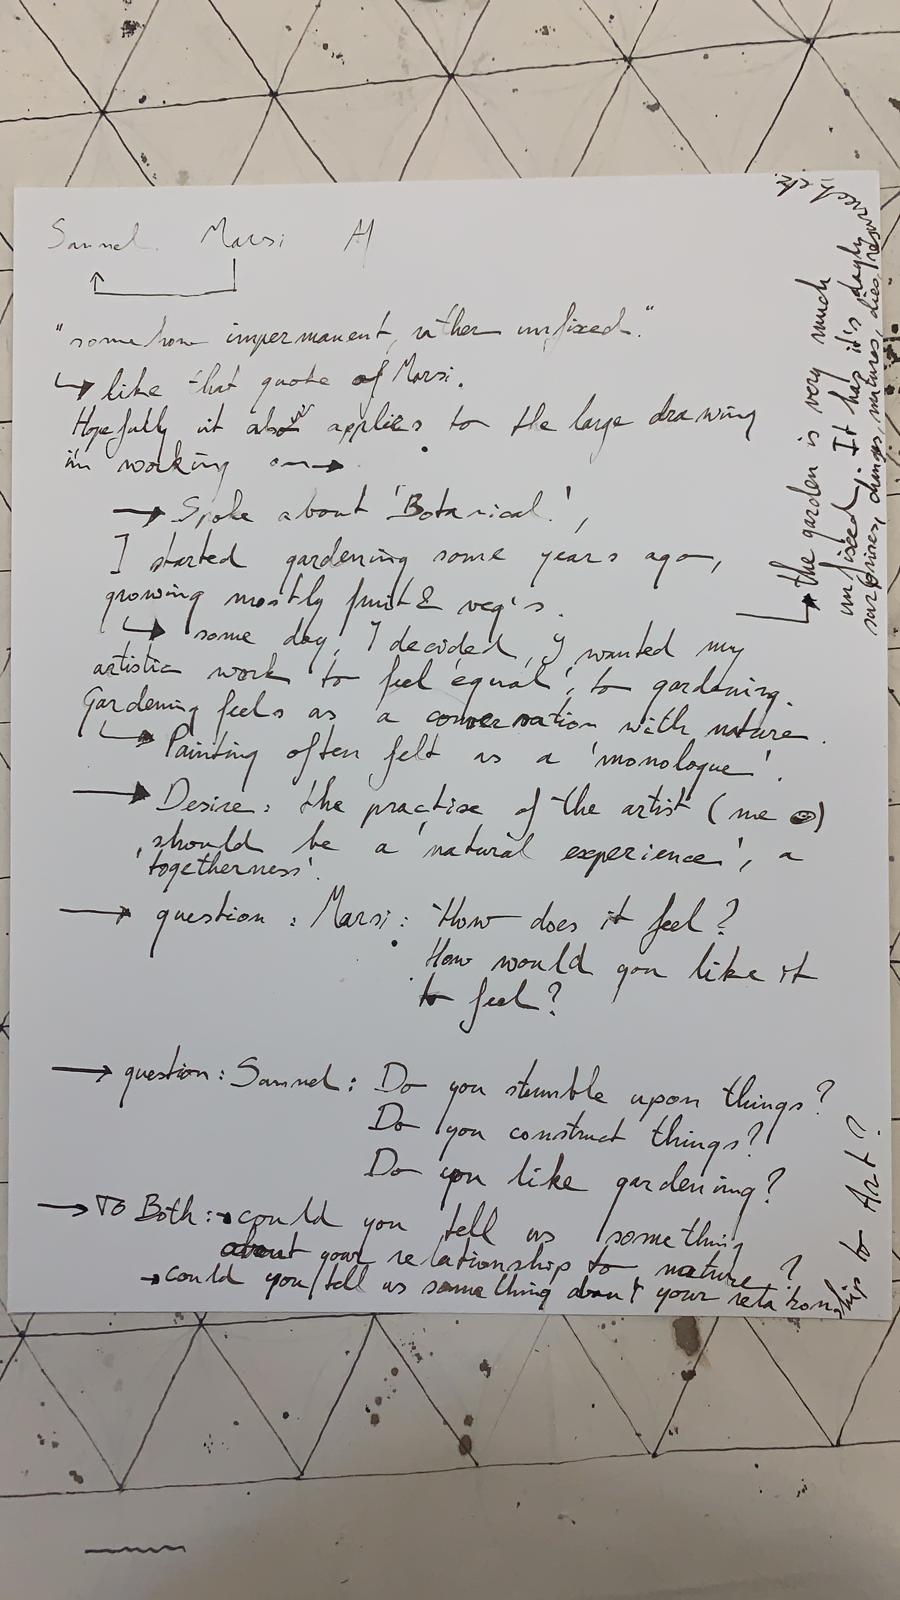 Samuel. Marsi A
"somehow impermanent, rather unfixed."
like that quote of Marsi.
Hopefully it also applies to the large drawing
i'm working on
Spoke about 'Botanical.',
I started gardening some years ago,
growing mostly fruit & veg's.
some day, I decided, I wanted my
artistic work to feel 'equal', to gardening.
Gardening feels as a conversation with nature.
Painting often felt as a 'monologue'.
Desire: the practise of the artist (me ☺)
should be a 'natural experience', a
'togetherness'.
question: Marsi: How does it feel?
How would you like it
to feel?
question: Samuel: Do you stumble upon things?
Do you construct things?
Do you like gardening?
To Both: could you tell us something
about your relationship to nature?
could you tell us something about your relationship to Art?
the garden is very much
unfixed. It has it's dayly
surprises, changes, matures, dies,